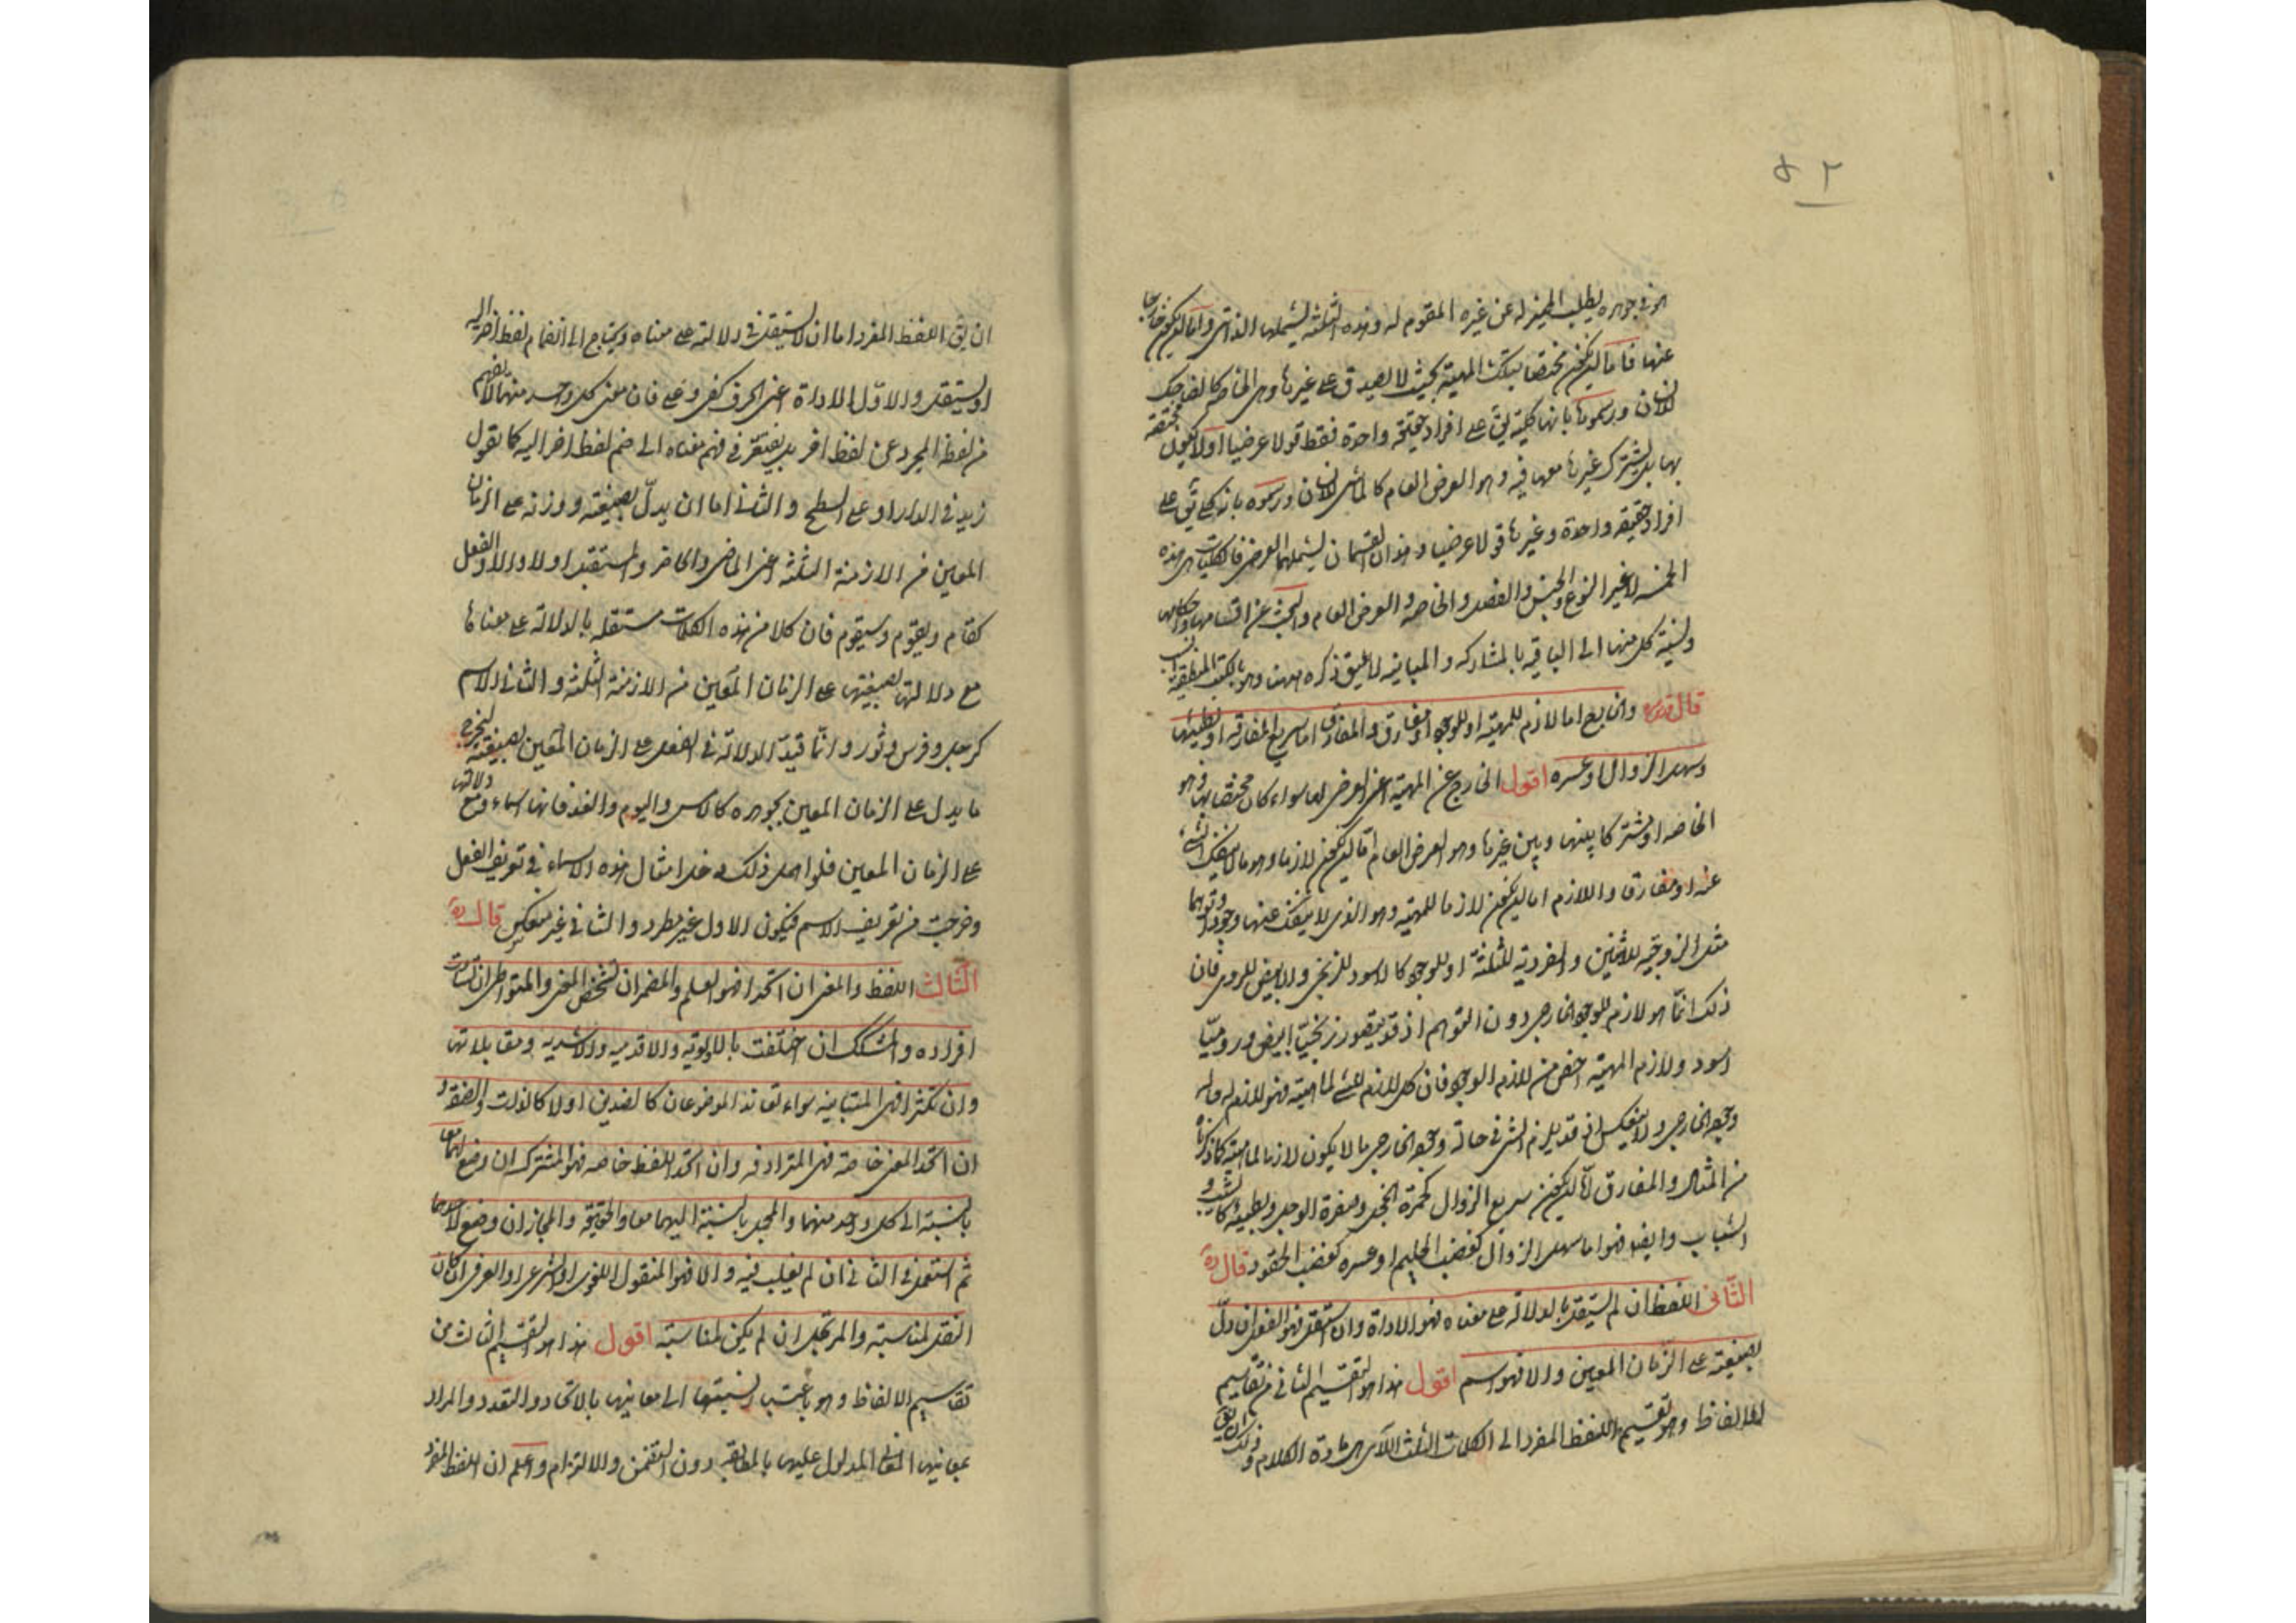 ٤٢
في جوهره يطلب المميز له عن غيره المقوم له وهذه الثلثة يشملها الذاتى واما ان يكون خارجا
عنها فاما ان يكون مختصا بتلك المهية بحيث لا يصدق على غيرها وهى الخاصة كالضاحك
للانسان ورسموها بانها كلية يق على افراد حقيقة واحدة فقط قولا عرضيا او لا يكون مختصة
بها بل يشترك غيرها معها فيه وهو العرض العام كالماشى للانسان ورسموه بانه كلى يق على
افراد حقيقة واحدة وغيرها قولا عرضيا وهذان القسمان يشملهما العرضى فالكليات هى هذه
الخمسة لا غير النوع والجنس والفصل والخاصة والعرض العام والبحث عن اقسامها واحكامها
ونسبة كل منها الى الباقية بالمشاركة والمباينة لا يليق ذكره ههنا وهو بالكتب المنطقية انسب
قال قدس سره والخارج اما لازم للمهية او للوجود او مفارق والمفارق اما سريع المفارقة او بطيئها
وسهل الزوال او عسره اقول الخارج عن المهية اعنى العرضى لها سواء كان مختصا بها وهو
الخاصة او مشتركا بينها وبين غيرها وهو العرض العام اما ان يكون لازما وهو ما لا ينفك الشىء
عنه او مفارق واللازم اما ان يكون لازما للمهية وهو الذى لا ينفك عنها وجودا وتوهما
مثل الزوجية للاثنين والفردية للثلثة او للوجود كالاسود للزنجى والابيض للرومى فان
ذلك انما هو لازم للوجود الخارجى دون التوهم اذ قد يتصور زنجيا ابيض وروميا
اسود ولازم المهية اخص من لازم الوجود فان كل لازم للشىء لماهيته فهو لازم له حال
وجوده الخارجى ولا ينعكس اذ قد يلزم الشىء فى حالة وجوده الخارجى ما لا يكون لازما لماهيته كما ذكرناه
من المثال والمفارق اما ان يكون سريع الزوال كحمرة الخجل وصفرة الوجل وبطيئه كالشيب و
الشباب وايضا فهو اما سهل الزوال كغضب الحليم او عسره كغضب الحقود قال ره
الثانى اللفظ ان لم يستقل بالدلالة على معناه فهو الاداة وان استقل فهو الفعل ان دل
بصيغته على الزمان المعين والا فهو اسم اقول هذا هو التقسيم الثانى من تقاسيم
الالفاظ وهو تقسيم اللفظ المفرد الى الكلمات الثلث اللاتى هى مادة الكلام وذلك ان يق
ان يق اللفظ المفرد اما ان لا يستقل فى دلالته على معناه ويحتاج الى انضمام لفظ اخر اليه
او يستقل والاول الاداة اعنى الحرف كفى وعلى فان معنى كل واحد منهما لا يفهم
من لفظه المجرد عن لفظ اخر بل يفتقر فى فهم معناه الى ضم لفظ اخر اليه كما تقول
زيد فى الدار او على السطح والثانى اما ان يدل بصيغته ووزنه على الزمان
المعين من الازمنة الثلثة اعنى الماضى والحاضر والمستقبل او لا والاول الفعل
كقام ويقوم وسيقوم فان كلا من هذه الكلمات مستقلة بالدلالة على معناها
مع دلالتها بصيغتها على الزمان المعين من الازمنة الثلثة والثانى الاسم
كرجل وفرس وثور وانما قيد الدلالة فى الفعل على الزمان المعين بصيغته ليخرج
ما يدل على الزمان المعين بجوهره كالامس واليوم والغد فانها اسماء ومع دلالتها
على الزمان المعين فلو اهمل ذلك دخل امثال هذه الاسماء فى تعريف الفعل
وخرجت من تعريف الاسم فيكون الاول غير مطرد والثانى غير منعكس قال ره
الثالث اللفظ والمعنى ان اتحدا فهو العلم والمضمر ان تشخص المعنى والمتواطى ان تساوت
افراده والمشكك ان اختلفت بالاولوية والاقدمية والاشدية ومقابلاتها
وان تكثرا فهى المتباينة سواء تعاند الموضوعان كالضدين او لا كالذات والصفة و
ان اتحد المعنى خاصة فهى المترادفة وان اتحد اللفظ خاصة فهو المشترك ان وضع لهما معا
بالنسبة الى كل واحد منهما والمجمل بالنسبة اليهما معا والحقيقة والمجاز ان وضع لاحدهما
ثم استعمل فى الثانى ان لم يغلب فيه والا فهو المنقول اللغوى او الشرعى او العرفى ان كان
النقل لمناسبة والمرتجل ان لم يكن لمناسبة اقول هذا هو التقسيم الثالث من
تقاسيم الالفاظ وهو باعتبار نسبتها الى معانيها بالاتحاد والتعدد والمراد
بمعانيها المعانى المدلول عليها بالمطابقة دون التضمن والالتزام واعلم ان اللفظ المفرد